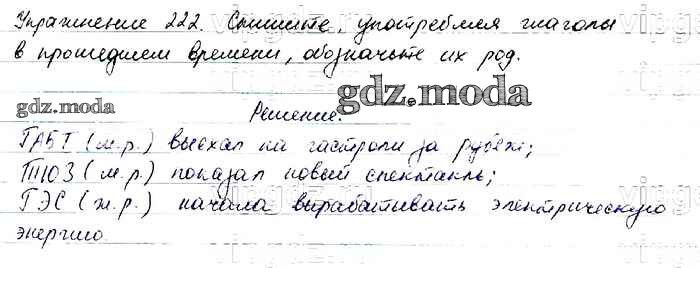 Упражнение 222. Спишите, употребляя глаголы
в прошедшем времени, обозначьте их род.
gdz.moda
Решение.
gdz.moda
ГАБТ (м.р.) выехал на гастроли за рубеж;
ТЮЗ (м.р.) показал новый спектакль;
ГЭС (ж.р.) начала вырабатывать электрическую
энергию